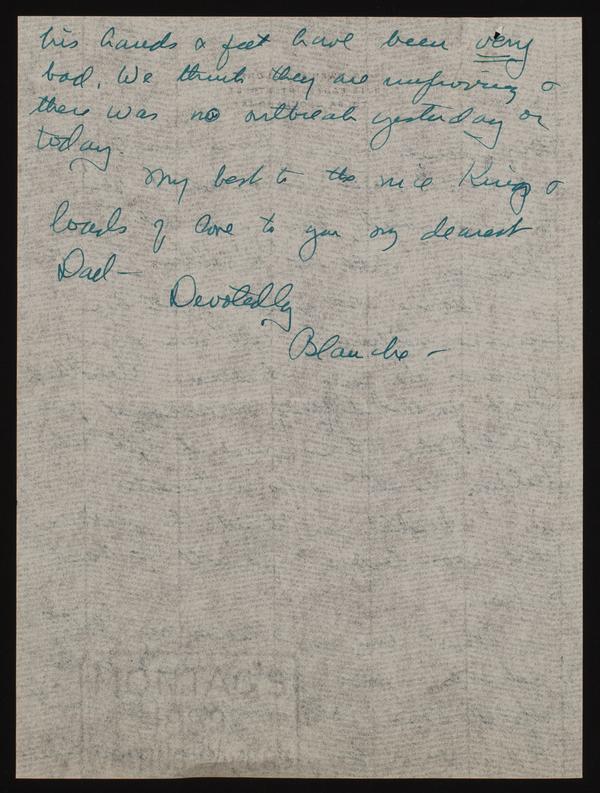 his hands & feet have been very
bad. We think they are improving &
there was no outbreak yesterday or
today.
My best to the nice Kings &
loads of love to you my dearest
Dad—
Devotedly
Blanche —